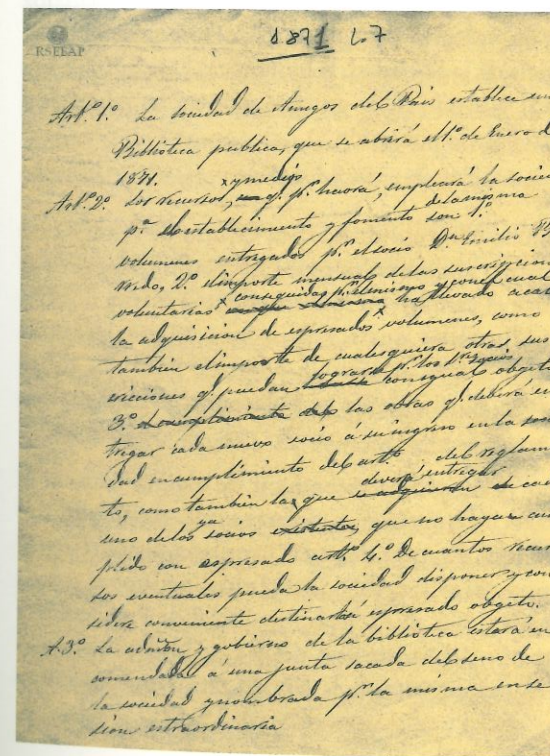 RSEEAP
1871 L.7
Art.º 1.º La sociedad de Amigos del Pais establece una
Biblioteca publica, que se abrirá el 1.º de Enero d
1871.
y medios
Art.º 2.º Los recursos, q. p.ª haora, empleará la socie
de la misma
p.ª el establecimiento y fomento son 1.º
volumenes entregados p.r el socio D.n Emilio
2.º el importe mensual de las suscripcion
conseguidas p.r el mismo y con el cual
voluntarias ha llevado a ca
la adquisicion de espresados volumenes, como
tambien el importe de cualesquiera otras sus
lograrse p.r los S.res socios
criciones q. puedan con igual obgeto
3.º las obras q. deberá en
tregar cada nuevo socio á su ingreso en la soci
dad en cumplimiento del art.º del reglam
deverá entregar
to, como tambien la que ca
ya
uno de los socios existentes, que no haya cum
plido con espresado art.º 4.º De cuantos recur
sos eventuales pueda la sociedad disponer y con
sidere conveniente destinar á espresado obgeto.
A. 3.º La admon y gobierno de la biblioteca estará en
comendada á una junta sacada del seno de
la sociedad y nombrada p.r la misma en se
sion estraordinaria